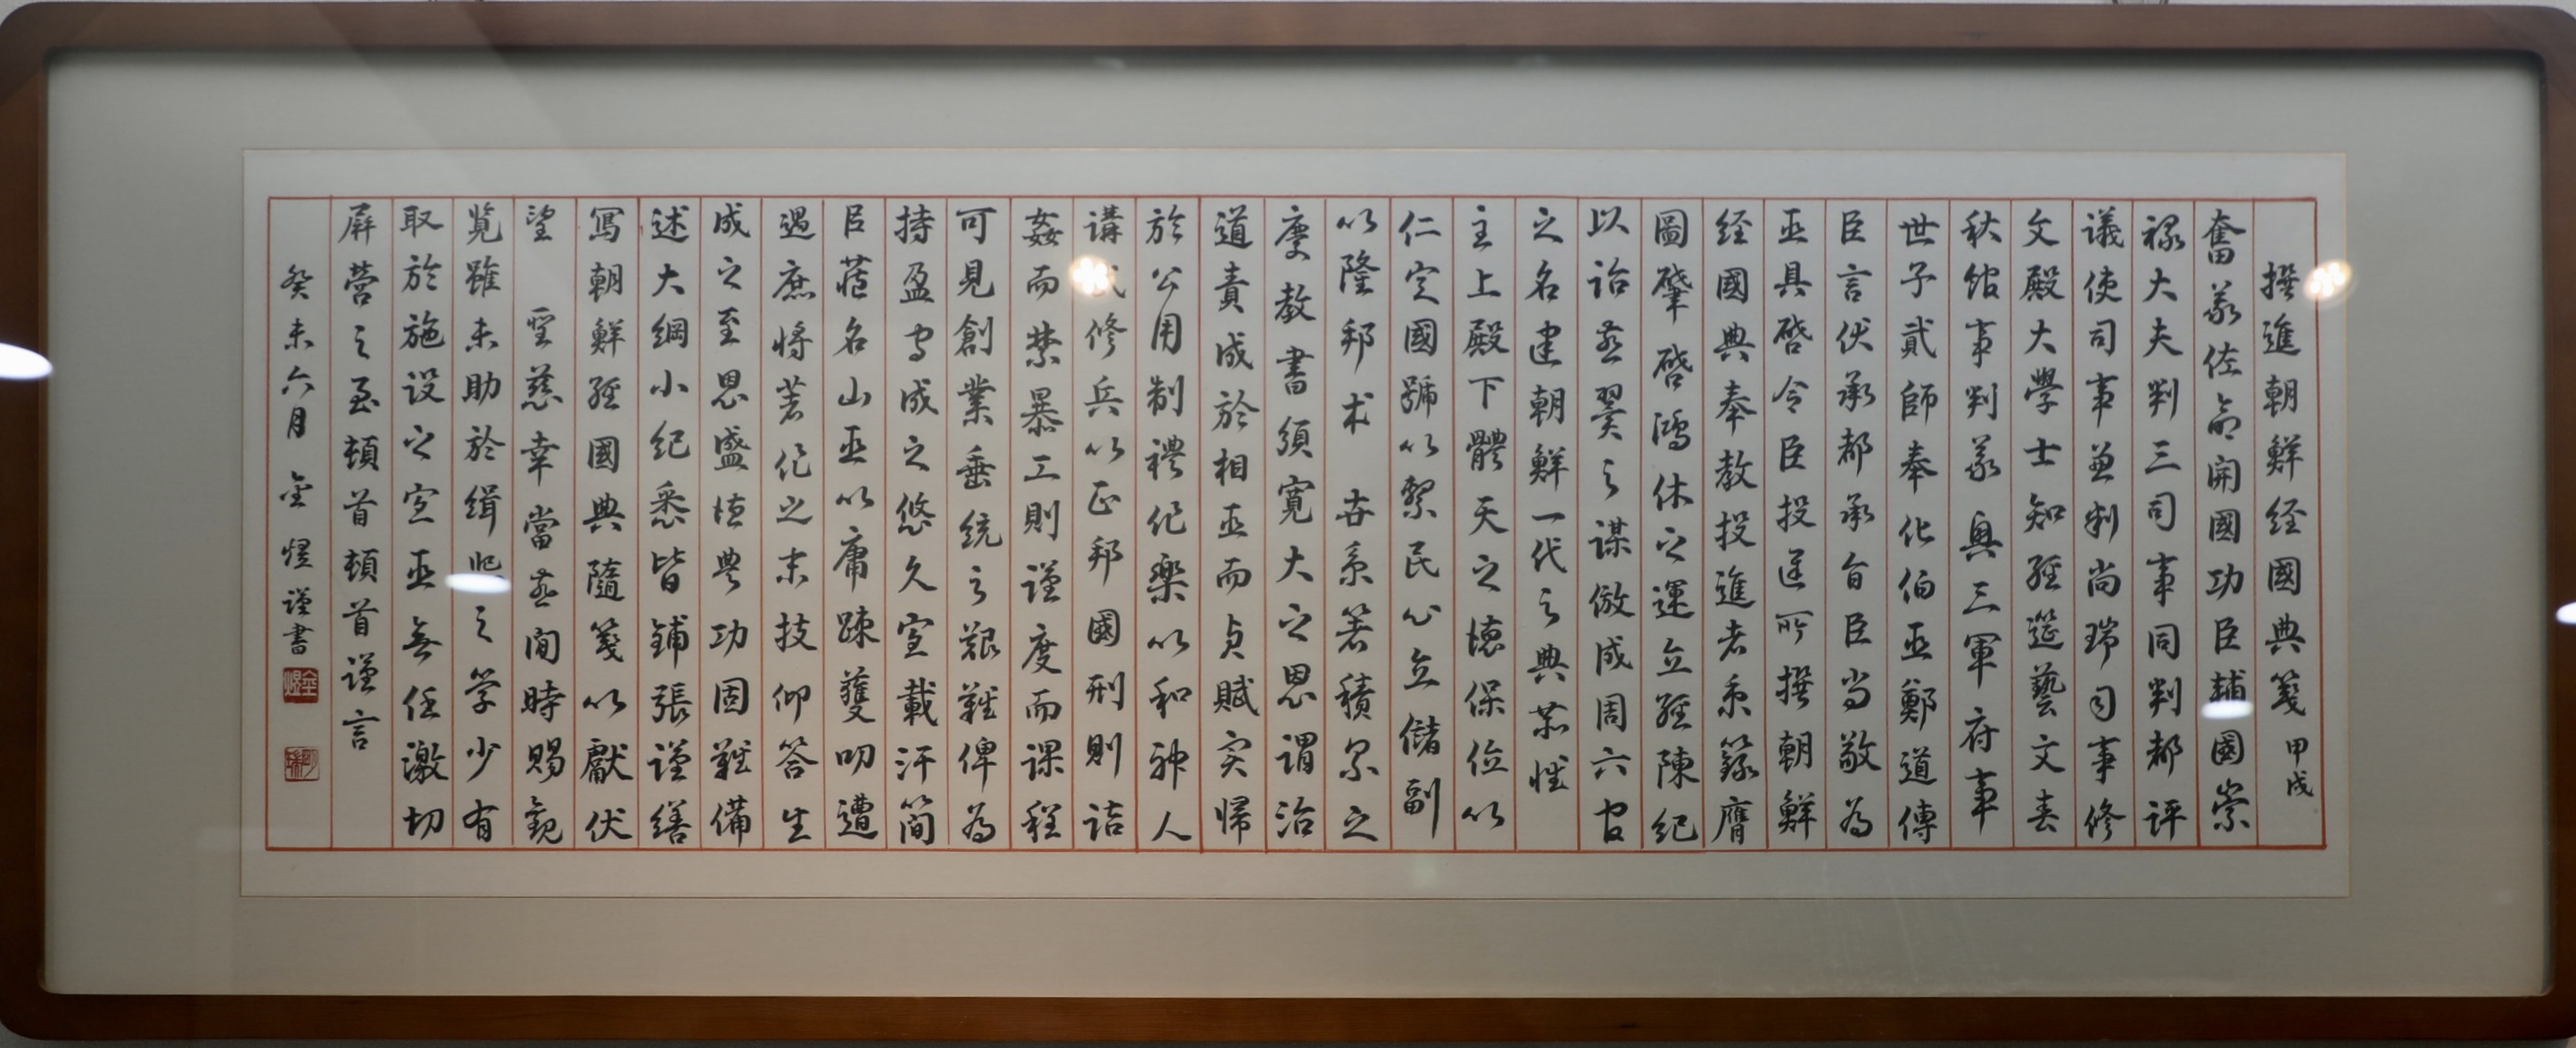 撰進朝鮮經國典箋 甲戌
奮義佐命開國功臣輔國崇
祿大夫判三司事同判都評
議使司事兼判尚瑞司事修
文殿大學士知經筵藝文春
秋館事判義興三軍府事
世子貳師奉化伯臣鄭道傳
臣言伏承都承旨臣尚敬為
臣具啓令臣投進所撰朝鮮
經國典奉教投進者系籙膺
圖肇啓鴻休之運立經陳紀
以詒燕翼之謀倣成周六官
之名建朝鮮一代之典恭惟
主上殿下體天之德保位以
仁定國號以繫民心立儲副
以隆邦本 世系著積累之
慶教書須寬大之恩謂治
道責成於相臣而貢賦實歸
於公用制禮作樂以和神人
講武修兵以正邦國刑則詰
姦而禁暴工則謹度而課程
可見創業垂統之艱難俾為
持盈守成之悠久宜載汗簡
以藏名山臣以庸踈獲叨遭
遇庶將著作之末技仰答生
成之至恩盛德豐功固難備
述大綱小紀悉皆鋪張謹繕
寫朝鮮經國典隨箋以獻伏
望 聖慈幸當燕閒時賜觀
覽雖未助於緝熙之學少有
取於施設之宜臣無任激切
屏營之至頓首頓首謹言
癸未六月 金煜謹書